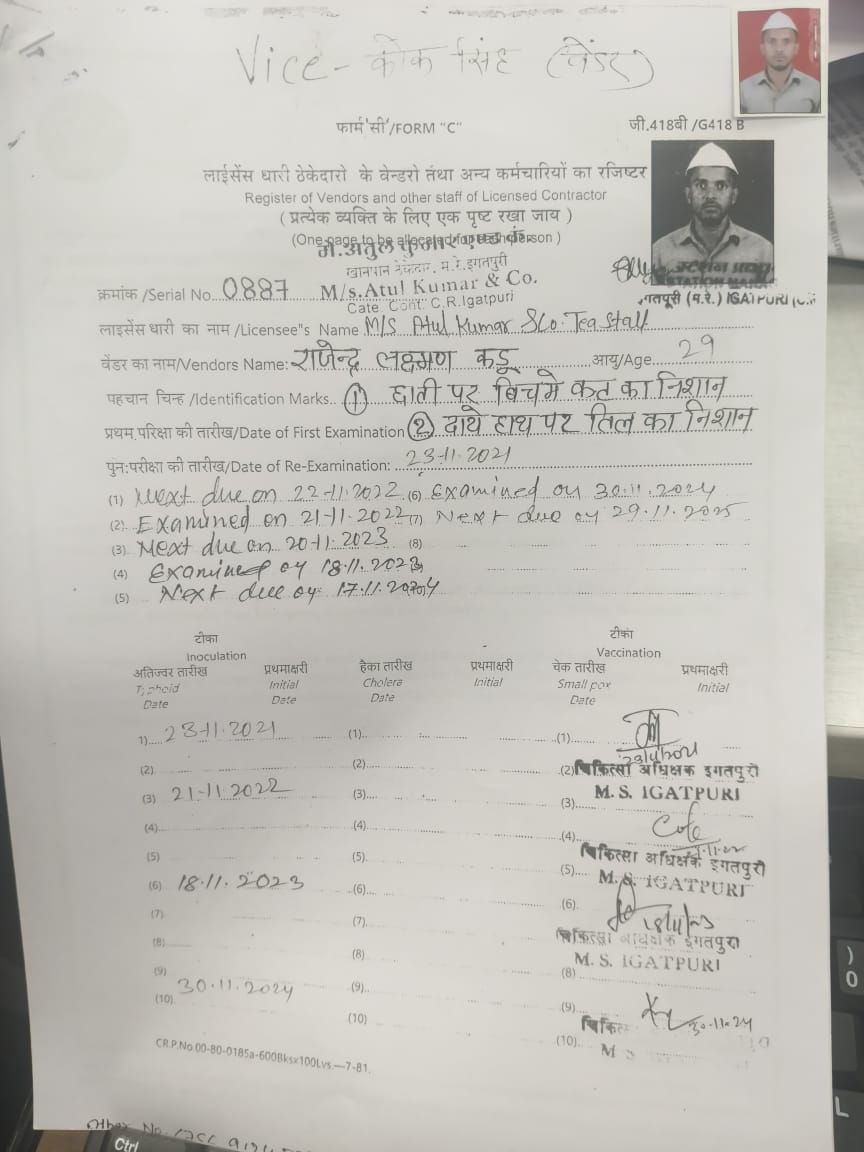 Vice - कोक सिंह (वेंडर)
फार्म 'सी'/FORM "C"
जी.418बी /G418 B
लाईसेंस धारी ठेकेदारो के वेन्डरो तंथा अन्य कर्मचारियों का रजिष्टर
Register of Vendors and other staff of Licensed Contractor
( प्रत्येक व्यक्ति के लिए एक पृष्ट रखा जाय )
(One page to be allocated for each person )
मे.अतुल कुमार एण्ड कं.
खानपान ठेकेदार, म.रे.इगतपुरी
M/s.Atul Kumar & Co.
Cate. Cont. C.R.Igatpuri
STATION MANAGER
इगतपूरी (म.रे.) IGATPURI (C.R
क्रमांक /Serial No. 0887
लाइसेंस धारी का नाम /Licensee"s Name M/S Atul Kumar &Co. Tea Stall
वेंडर का नाम/Vendors Name: राजेन्द्र लक्ष्मण कडू आयु/Age 29
पहचान चिन्ह /Identification Marks.. (1) छाती पर बिचमे कट का निशान
प्रथम.परिक्षा की तारीख/Date of First Examination (2) दाये हाथ पर तिल का निशान
पुन:परीक्षा की तारीख/Date of Re-Examination: 23-11-2021
(1) Next due on 22-11-2022 (6) Examined on 30.11.2024
(2). Examined on 21-11-2022 (7) Next due on 29.11.2025
(3) Next due on 20-11-2023 (8)
(4) Examined on 18.11.2023
(5) Next due on 17.11.2024
टीका टीका
Inoculation Vaccination
अतिज्वर तारीख प्रथमाक्षरी हैका तारीख प्रथमाक्षरी चेक तारीख प्रथमाक्षरी
Typhoid Initial Cholera Initial Small pox Initial
Date Date Date Date
1) 23-11-2021 (1) (1)
(2) (2) (2) चिकित्सा अधिक्षक इगतपुरी
M.S. IGATPURI
(3) 21-11-2022 (3) (3)
(4) (4) (4)
चिकित्सा अधिक्षक इगतपुरी
(5) (5) (5) M.S. IGATPURI
(6) 18.11.2023 (6) (6) 18/11/23
(7) (7)
चिकित्सा अधिक्षक इगतपुरी
M.S. IGATPURI
(8) (8) (8)
(9) (9) (9) 30.11.24
(10) 30.11.2024 (10) (10)
चिकि
M S
C.R.P.No.00-80-0185a-600Bksx100Lvs.—7-81.
Ctrl
L
)
0